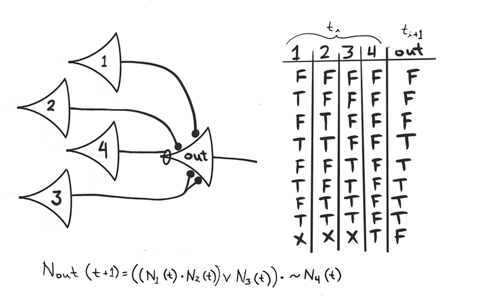 1
2
4
3
out
t_i t_{i+1}
1 2 3 4 out
F F F F F
T F F F F
F T F F F
T T F F T
F F T F T
T F T F T
F T T F T
T T T F T
X X X T F
N_out (t+1) = ((N_1(t) · N_2(t)) ∨ N_3(t)) · ~N_4(t)